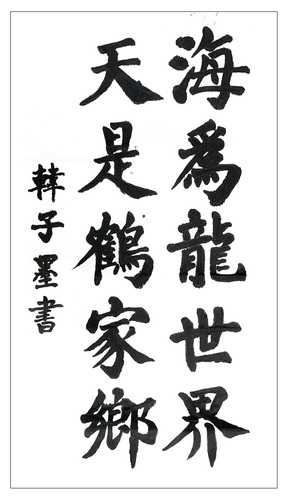 海為龍世界
天是鶴家鄉
韓子墨書